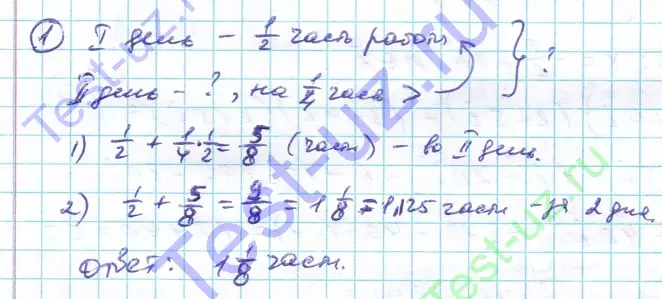 ① I день – 1/2 часть работы
II день – ?, на 1/4 часть > } ?
1) 1/2 + 1/4 · 1/2 = 5/8 (часть) – во II день.
2) 1/2 + 5/8 = 9/8 = 1 1/8 = 1,125 части – за 2 дня
Ответ: 1 1/8 части.
Test-uz.ru
Test-uz.ru
Test-uz.ru